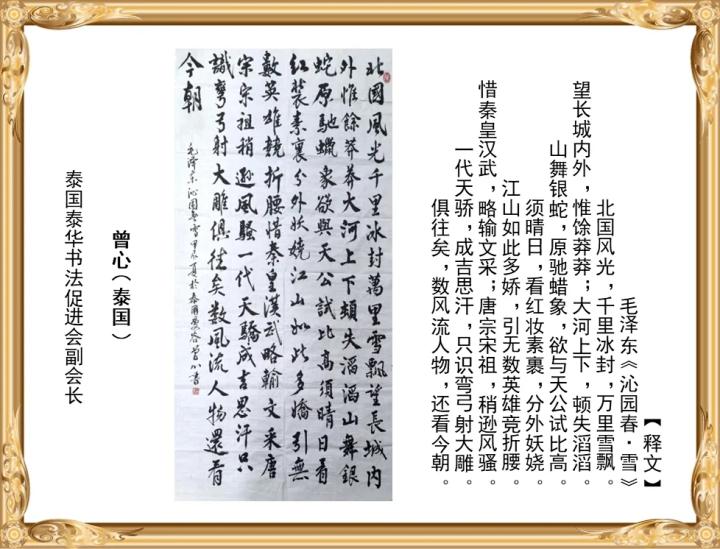 【释文】
毛泽东《沁园春·雪》
北国风光，千里冰封，万里雪飘。
望长城内外，惟馀莽莽；大河上下，顿失滔滔。
山舞银蛇，原驰蜡象，欲与天公试比高。
须晴日，看红妆素裹，分外妖娆。
江山如此多娇，引无数英雄竞折腰。
惜秦皇汉武，略输文采；唐宗宋祖，稍逊风骚。
一代天骄，成吉思汗，只识弯弓射大雕。
俱往矣，数风流人物，还看今朝。
北國風光千里冰封萬里雪飄望長城内
外惟餘莽莽大河上下頓失滔滔山舞銀
蛇原馳蠟象欲與天公試比高須晴日看
红裝素裹分外妖娆江山如此多嬌引無
數英雄競折腰惜秦皇漢武略輸文采唐
宗宋祖稍遜風騷一代天驕成吉思汗只
識彎弓射大雕俱往矣数風流人物還看
今朝
毛泽东沁園春雪甲辰夏於泰國曼谷曾心書
曾心（泰国）
泰国泰华书法促进会副会长